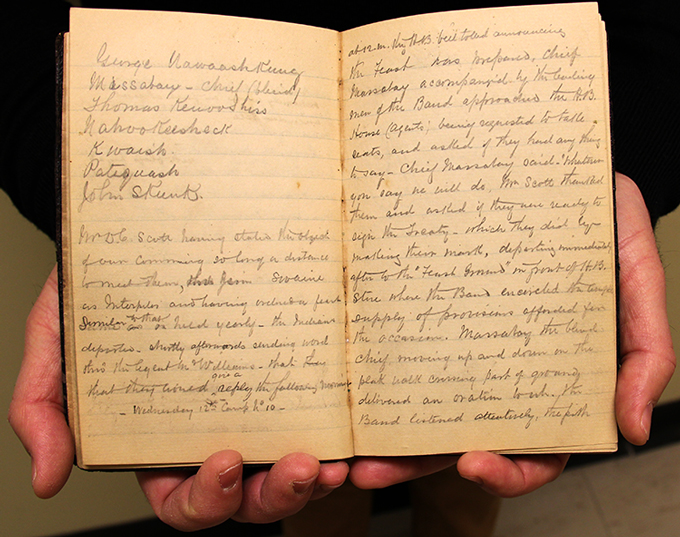 George Nawaashkung
Missabay - Chief (blind)
Thomas Renooshins
Nahwookeesheck
Kwaish
Patequash
John Skunk.
Mr D.C. Scott having stated the object
of our comming so long a distance
to meet them, thro Jim Swaine
as Interpter and having ordered a feast
Similar to that on held yearly - the Indians
departed - shortly afterwards sending word
thro the agent Mr Williams - that they
that they wished give a reply the following morning
- Wednesday 12th Camp No 10 -
at 12-m. the H.B. bell tolled announcing
the Feast was prepared, Chief
Massabay accompanied by the leading
men of the Band approached the H.B.
House (Agents) being requested to take
seats, and asked if they had any thing
to say - Chief Massabay said - Whatever
you say we will do, Mr Scott thanked
them and asked if they were ready to
sign the Treaty - which they did by
making their mark, departing immediately
after to the Feast Ground in front of H.B.
Store where the Band encircled the
supply of provisions afforded for
the occasion. Massabay the blind
chief moving up and down on the
plank walk crossing part of ground
delivered an oration to whi. the
Band listened attentively, the pith